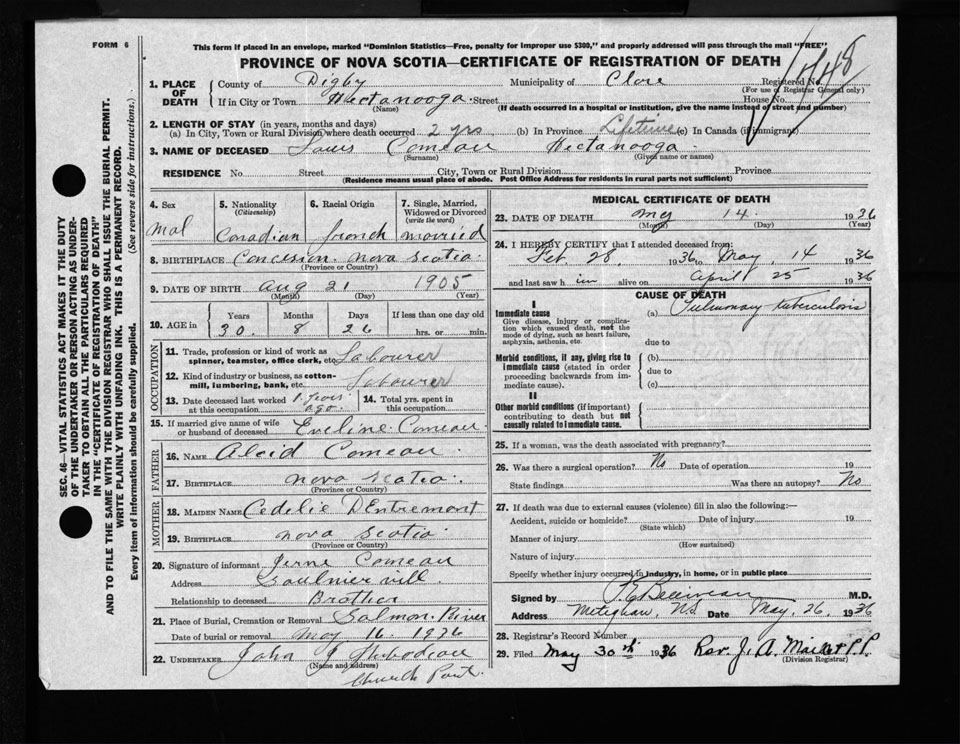 FORM 6
This form if placed in an envelope, marked "Dominion Statistics—Free, penalty for improper use $300," and properly addressed will pass through the mail "FREE"
PROVINCE OF NOVA SCOTIA—CERTIFICATE OF REGISTRATION OF DEATH
SEC. 46—VITAL STATISTICS ACT MAKES IT THE DUTY
OF THE UNDERTAKER OR PERSON ACTING AS UNDER-
TAKER TO OBTAIN ALL THE PARTICULARS REQUIRED
IN THE "CERTIFICATE OF REGISTRATION OF DEATH"
AND TO FILE THE SAME WITH THE DIVISION REGISTRAR WHO SHALL ISSUE THE BURIAL PERMIT.
WRITE PLAINLY WITH UNFADING INK. THIS IS A PERMANENT RECORD.
Every item of information should be carefully supplied. (See reverse side for instructions.)
1. PLACE OF DEATH County of Digby Municipality of Clare Registered No.
(For use of Registrar General only)
If in City or Town Hectanooga Street House No.
(Name) (If death occurred in a hospital or institution, give the name instead of street and number)
2. LENGTH OF STAY (in years, months and days)
(a) In City, Town or Rural Division where death occurred 2 yrs (b) In Province Lifetime (c) In Canada (if immigrant)
3. NAME OF DECEASED Louis Comeau Hectanooga
(Surname) (Given name or names)
RESIDENCE No. Street City, Town or Rural Division Province
(Residence means usual place of abode. Post Office Address for residents in rural parts not sufficient)
4. Sex Mal
5. Nationality (Citizenship) Canadian
6. Racial Origin french
7. Single, Married, Widowed or Divorced (write the word) married
8. BIRTHPLACE Concesion nova scotia
(Province or Country)
9. DATE OF BIRTH aug 21 1905
(Month) (Day) (Year)
10. AGE in Years 30 Months 8 Days 26 If less than one day old hrs. or min.
OCCUPATION
11. Trade, profession or kind of work as spinner, teamster, office clerk, etc. Labourer
12. Kind of industry or business, as cotton-mill, lumbering, bank, etc. Labourer
13. Date deceased last worked at this occupation 1 year ago
14. Total yrs. spent in this occupation
15. If married give name of wife or husband of deceased Eveline Comeau
FATHER
16. NAME Alcid Comeau
17. BIRTHPLACE nova scotia
(Province or Country)
MOTHER
18. MAIDEN NAME Cedelie DEntremont
19. BIRTHPLACE nova scotia
(Province or Country)
20. Signature of informant Comeau
Address Saulnier vill
Relationship to deceased Brother
21. Place of Burial, Cremation or Removal Salmon River
Date of burial or removal may 16 1936
22. UNDERTAKER John J Thibodeau
(Name and address)
Church Point
MEDICAL CERTIFICATE OF DEATH
23. DATE OF DEATH May 14 1936
(Month) (Day) (Year)
24. I HEREBY CERTIFY that I attended deceased from:
Feb. 28 1936 to May 14 1936
and last saw him alive on April 25 1936
CAUSE OF DEATH
I
Immediate cause
Give disease, injury or complication which caused death, not the mode of dying, such as heart failure, asphyxia, asthenia, etc.
(a) Pulmonary tuberculosis
due to
Morbid conditions, if any, giving rise to immediate cause (stated in order proceeding backwards from immediate cause).
(b)
due to
(c)
II
Other morbid conditions (if important) contributing to death but not causally related to immediate cause.
25. If a woman, was the death associated with pregnancy?
26. Was there a surgical operation? No Date of operation 19
State findings Was there an autopsy? No
27. If death was due to external causes (violence) fill in also the following:—
Accident, suicide or homicide? Date of injury 19
(State which)
Manner of injury
(How sustained)
Nature of injury
Specify whether injury occurred in industry, in home, or in public place
Signed by P.E. Belliveau M.D.
Address Meteghan, NS Date May, 26, 1936
28. Registrar's Record Number
29. Filed May 30th 1936 Rev. J. A. P.P.
(Division Registrar)